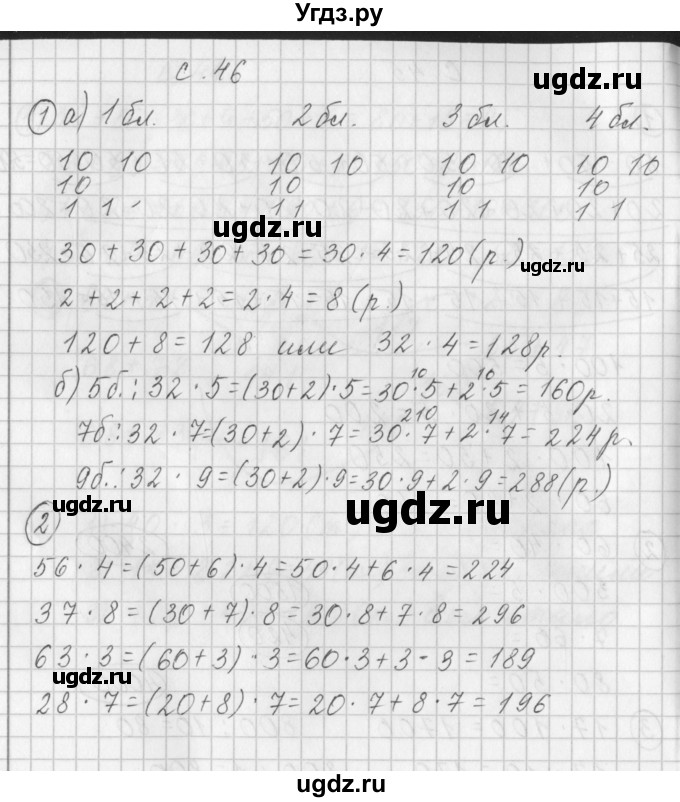 Угдз.ру
с. 46
ugdz.ru
① а) 1 бл. 2 бл. 3 бл. 4 бл.
10 10 10 10 10 10 10 10
10 10 10 10
1 1 1 1 1 1 1 1
ugdz.ru
30 + 30 + 30 + 30 = 30 · 4 = 120 (р.)
ugdz.ru
2 + 2 + 2 + 2 = 2 · 4 = 8 (р.)
120 + 8 = 128 или 32 · 4 = 128 р.
10 10
б) 5б.: 32 · 5 = (30+2) · 5 = 30 · 5 + 2 · 5 = 160 р.
210 14
7б.: 32 · 7 = (30+2) · 7 = 30 · 7 + 2 · 7 = 224 р.
9б.: 32 · 9 = (30+2) · 9 = 30 · 9 + 2 · 9 = 288 (р.)
ugdz.ru
ugdz.ru
②
56 · 4 = (50+6) · 4 = 50 · 4 + 6 · 4 = 224
37 · 8 = (30+7) · 8 = 30 · 8 + 7 · 8 = 296
63 · 3 = (60+3) · 3 = 60 · 3 + 3 · 3 = 189
ugdz.ru
28 · 7 = (20+8) · 7 = 20 · 7 + 8 · 7 = 196
ugdz.ru